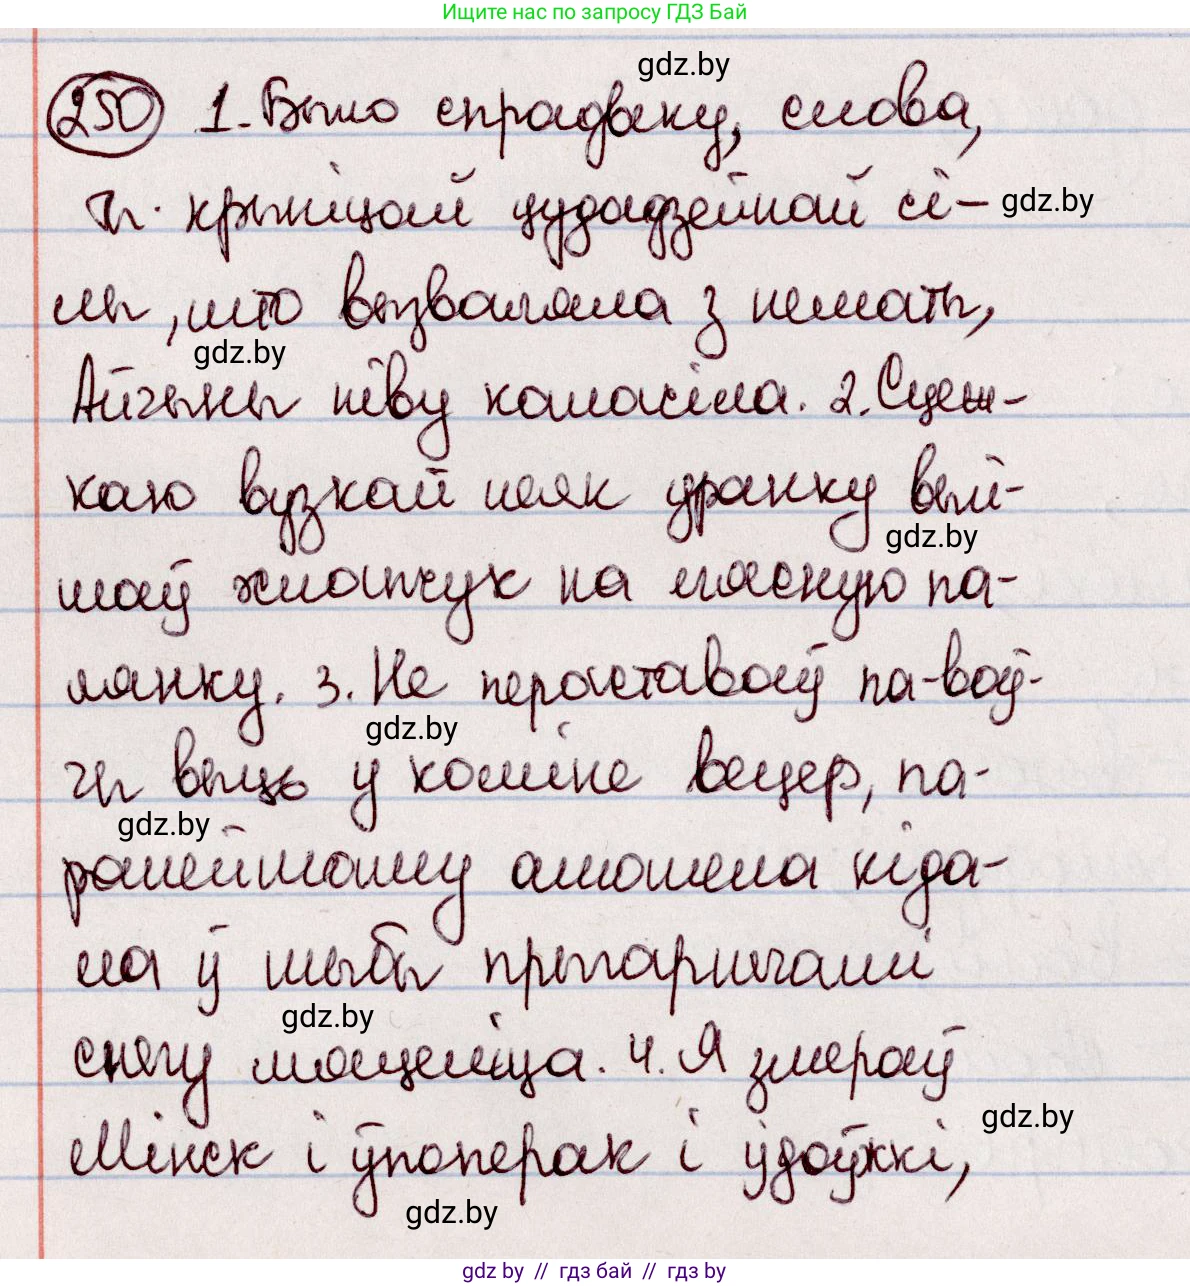 Ищите нас по запросу ГДЗ Бай
gdz.by
250 1. Было спрадвеку, слова,
ты крыніцай цудадзейнай сі-
gdz.by
лы, што вызваляла з нематы,
gdz.by
Айчыны ніву каласіла. 2. Сцеж-
каю вузкай неяк уранку вый-
gdz.by
шаў хлапчук на лясную па-
лянку. 3. Не пераставаў па-воў-
gdz.by
чы выць у коміне вецер, па-
gdz.by
ранейшаму амошела кіда-
ла ў шыбы прыгаршчамі
gdz.by
снегу мяцеліца. 4. Я змераў
gdz.by
Мінск і ўпоперак і ўдоўжкі,
gdz.by
gdz by // гдз бай // gdz by